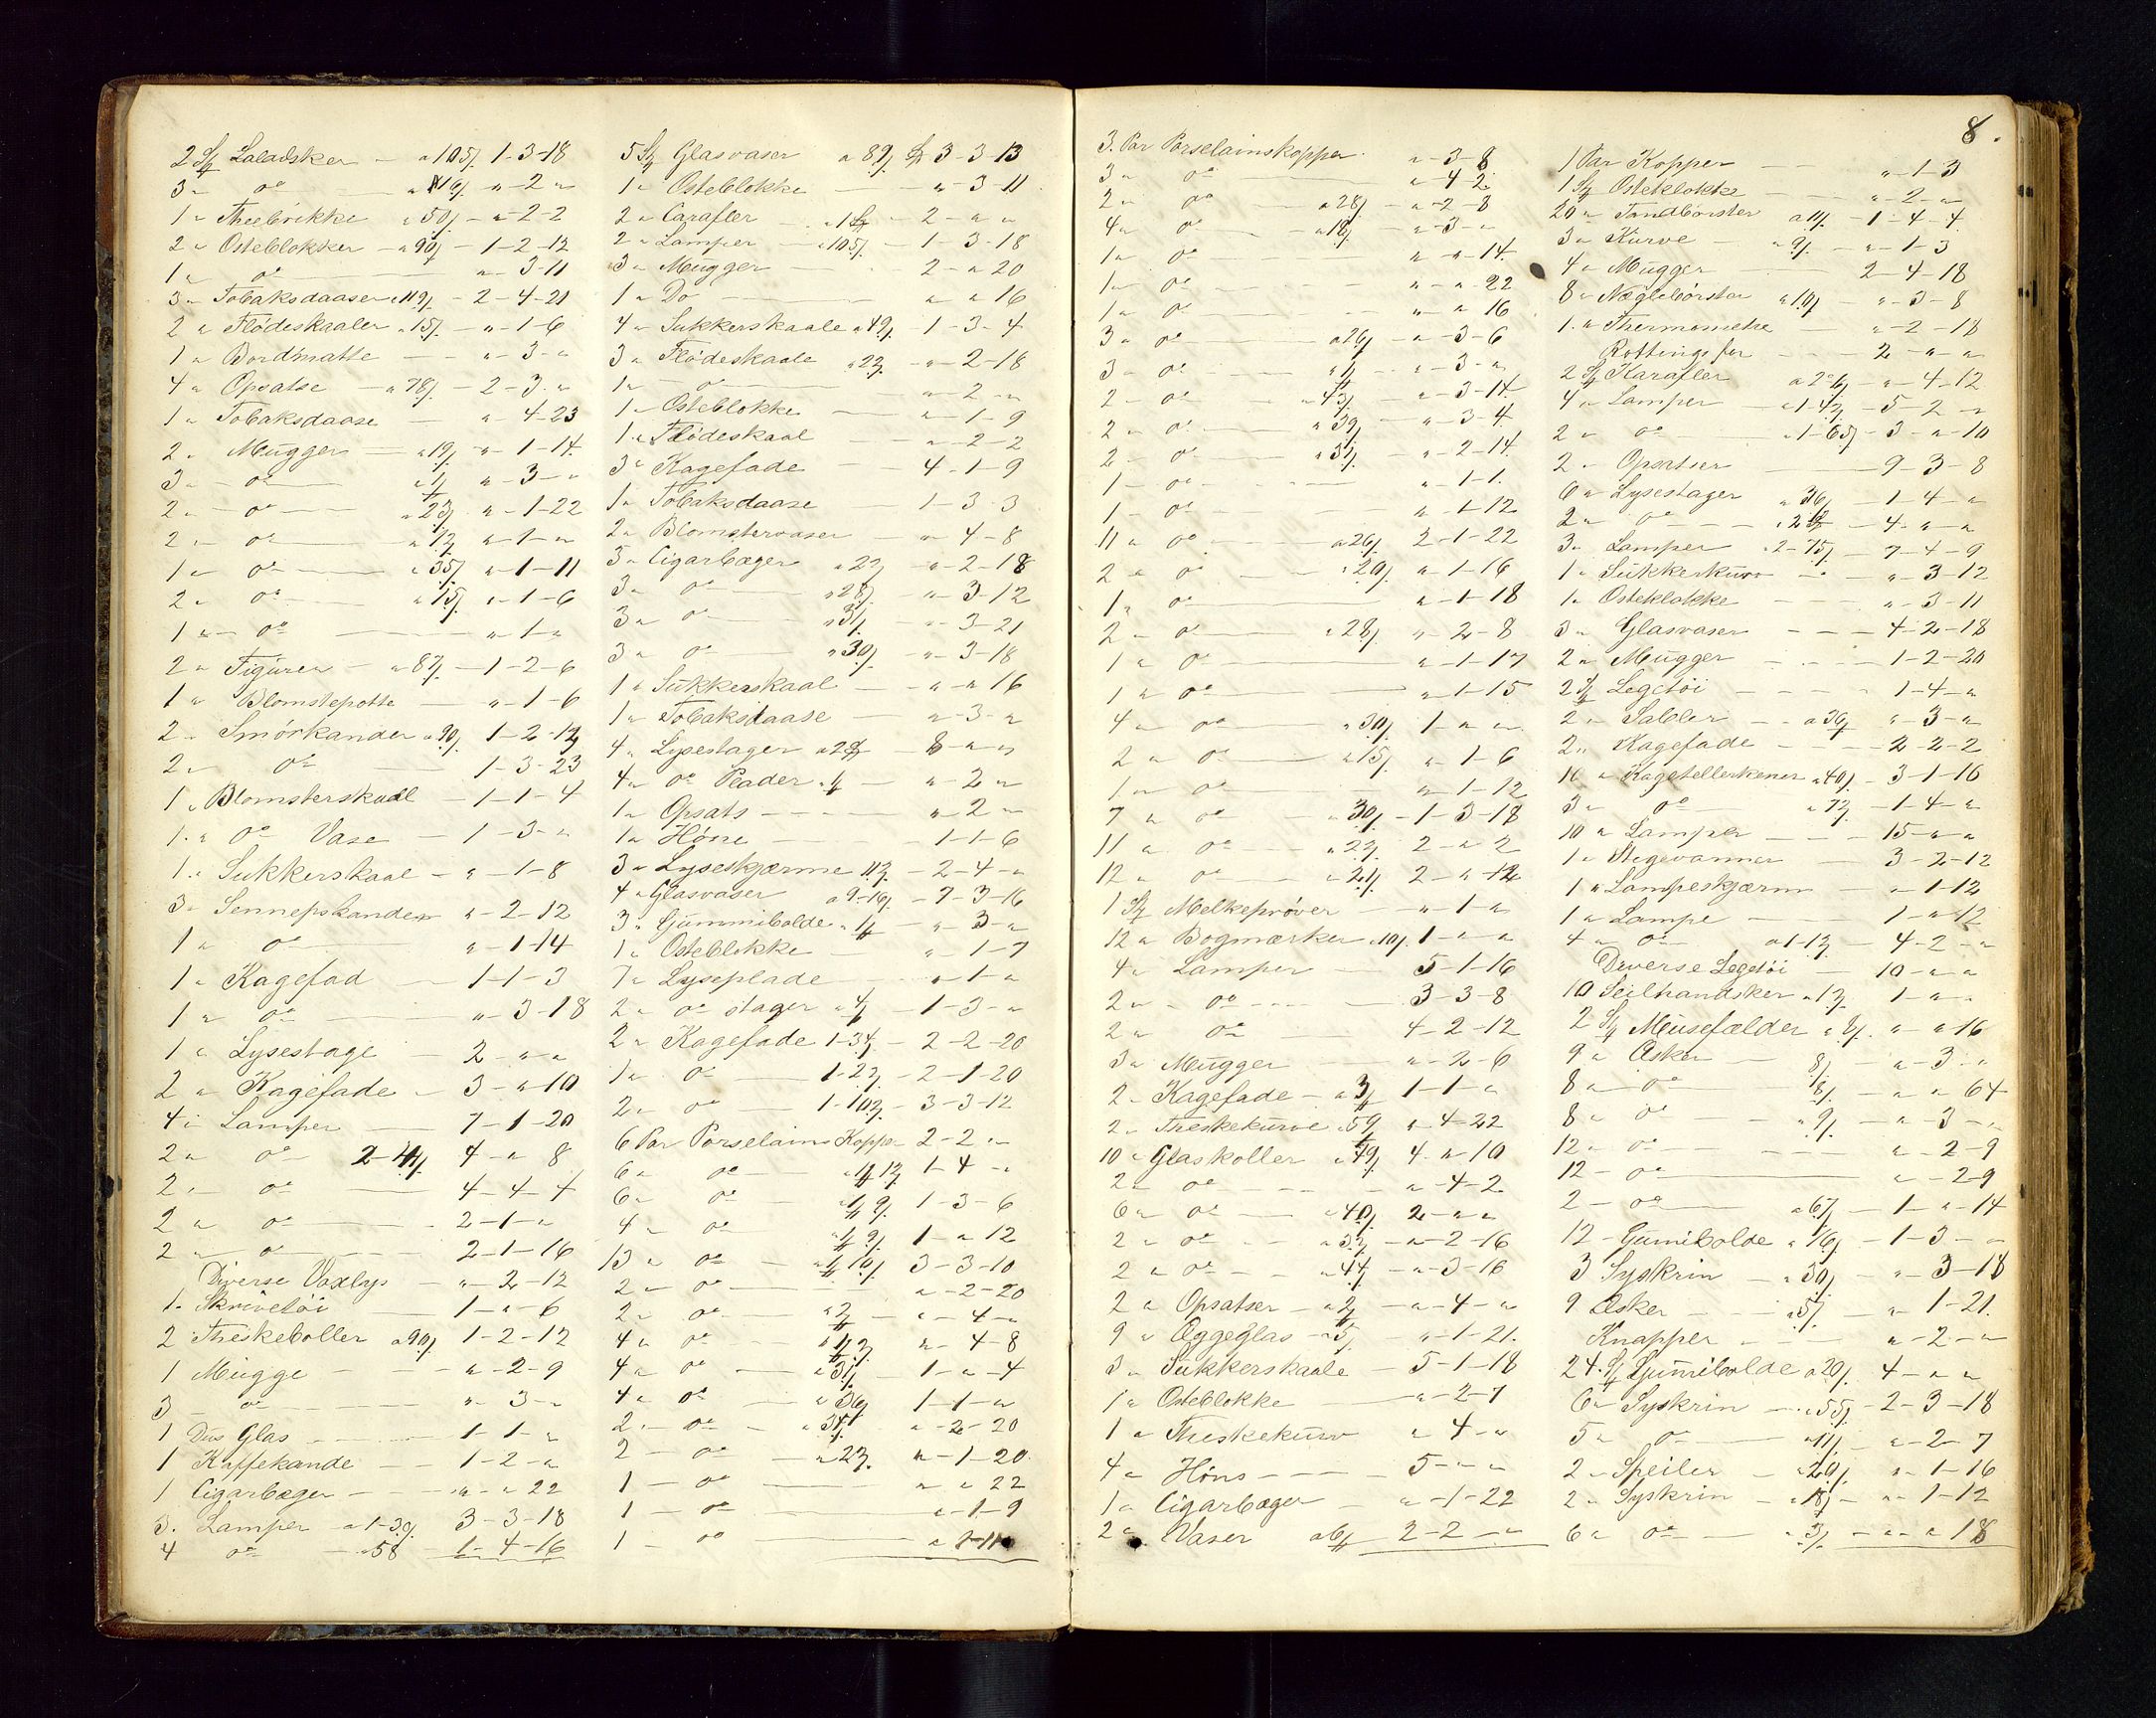 2 St Saladsker — a 105/ 1-3-18
3 " do — a 16/ "-2-"
1 " Theebrikke a 50/ - "-2-2
2 " Osteklokker - a 90/ - 1-2-12
1 " do — "-3-11
3 " Tobaksdaaser a 119/ - 2-4-21
2 " Flödeskaaler a 15/ - "-1-6
1 " Bordmatte — "-3-"
4 " Opsatse — a 78/ - 2-3-"
1 " Tobaksdaase — "-4-23
2 " Mugger — a 19/ "-1-14
3 " do — "-3-"
2 " do — a 23/ "-1-22
2 " do — a 12/ "-1-"
1 " do — a 35/ "-1-11
2 " do — a 15/ "-1-6
1 " do — "-1-"
2 " Figurer — a 87/ - 1-2-6
1 " Blomstepotte — "-1-6
2 " Smörkander a 90/ 1-2-12
2 " do — 1-3-23
1 " Blomsterskaal — 1-1-4
1 " do Vase — 1-3-"
1 " Sukkerskaal — "-1-8
3 " Sennepskander "-2-12
1 " do "-1-14
1 " Kagefad — 1-1-3
1 " do — "-3-18
1 " Lysestage — 2-"-"
2 " Kagefade — 3-"-10
4 " Lamper — 7-1-20
2 " do 4-"-8
2 " do — 4-4-4
2 " do — 2-1-"
2 " do — 2-1-16
Diverse Voxlys — "-2-12
1 " Skrivetöi — 1-"-6
2 Theskeboller a 90/ 1-2-12
1 Mugge — "-2-9
3 do — "-3-"
1 Dus Glas — 1-1-"
1 Kaffekande — 1-2-"
1 Cigarbæger — "-"-22
3 " Lamper — a 1-30/ 3-3-18
4 do — a 58 1-4-16
5 St Glasvaser a 89/ 3-3-13
1 " Osteklokke — "-3-11
2 " Carafler — 2-"-"
2 " Lamper a 105/ - 1-3-18
3 " Mugger — 2-"-20
1 " Do — "-"-16
4 " Sukkerskaale a 49/ - 1-3-4
3 " Flödeskaale a 22/ - "-2-18
1 " do — "-2-"
1 " Osteklokke — "-1-9
1 " Flödeskaal — "-2-2
3 " Kagefade — 4-1-9
1 " Tobaksdaase 1-3-3
2 " Blomstervaser "-4-8
3 " Cigarbæger a 22/ - "-2-18
3 " do — a 28/ "-3-12
3 " do — a 31/ "-3-21
3 " do — a 30/ "-3-18
1 " Sukkerskaal — "-"-16
1 " Tobaksdaase — "-3-"
4 " Lysestager — 8-"-"
4 " do Plader — "-2-"
1 " Opsats — "-2-"
1 " Höne — 1-1-6
3 " Lyseskjærme 112/ - 2-4-"
4 " Glasvaser — 7-3-16
3 " Gummibolde — "-3-"
1 " Osteklokke — "-1-7
7 " Lyseplade — "-1-"
2 " do stager — 1-3-"
2 " Kagefade 1-34/ - 2-2-20
1 " do — 2-1-20
2 " do — 1-102/ - 3-3-12
6 Par Porselains Kopper 2-2-"
6 " do — 1-4-"
6 " do — 1-3-6
4 " do — 1-"-12
13 " do — 3-3-10
2 " do — "-2-20
2 " do — "-4-"
4 " do — "-4-8
4 " do — a 31/ 1-"-4
4 " do — a 36/ 1-1-"
2 " do — a 34/ "-2-20
2 — do — a 22/ "-1-20
1 — do — "-"-22
1 — do — "-1-9
1 — do
8.
3 Par Porselainskopper "-3-8
3 " do — "-4-2
2 " do — a 28/ - "-2-8
4 " do — a 18/ - "-3-"
1 " do — "-"-14
1 " do — "-"-22
1 " do — "-"-16
3 " do — a 26/ - "-3-6
3 " do — "-3-"
2 " do — a 43/ "-3-14
2 " do — "-3-4
2 " do — "-2-14
1 " do — "-1-1
1 " do — "-1-12
11 " do — a 26/ 2-1-22
2 " do — a 20/ "-1-16
1 " do — "-1-18
2 " do — a 28/ "-2-8
1 " do — "-1-17
1 " do — "-1-15
4 " do — a 30/ 1-"-"
2 " do — a 15/ "-1-6
1 " do — "-1-12
7 " do — a 30/ - 1-3-18
11 " do — a 22/ 2-"-2
12 " do — a 21/ 2-"-12
1 St Melkeprøver — "-1-"
12 " Bogmærker a 10/ 1-"-"
4 " Lamper — 5-1-16
2 " do — 3-3-8
2 " do — 4-2-12
3 " Mugger — "-2-6
2 " Kagefade — 1-1-"
2 " Theskekurve a 59/ "-4-22
10 " Glaskoller a 49/ 4-"-10
2 " do — "-4-2
6 " do — a 40/ 2-"-"
2 " do — a 32/ - "-2-16
2 " do — a 44/ - "-3-16
2 " Opsatser — "-4-"
9 " Æggeglas — a 5/ "-1-21
3 " Sukkerskaale — 5-1-18
1 " Osteklokke — "-2-7
1 " Theskekurv "-4-"
4 " Höns — 5-"-"
1 " Cigarbæger — "-1-22
2 " Vaser 2-2-"
1 Par Kopper — "-1-3
1 St Osteklokke — "-2-"
20 " Tandbörster a 11/ - 1-4-4
3 " Kurve — a 9/ - "-1-3
4 " Mugger — 2-4-18
8 " Neglebörster a 10/ - "-3-8
1 " Thermometre — "-2-18
Rottingsfer — 2-"-"
2 St Karafler — "-4-12
4 " Lamper — 5-2-"
2 " do — a 1-65/ - 3-"-10
2 " Opsatser — 9-3-8
6 " Lysestager a 36/ - 1-4-"
2 " do — 4-"-"
3 " Lamper a 2-75/ - 7-4-9
1 " Sukkerkurv — "-3-12
1 " Osteklokke — "-3-11
3 " Glasvaser — 4-2-18
2 " Mugger — 1-2-20
2 St Legetöi — 1-4-"
2 " Sabler — a 36/ "-3-"
2 " Kagefade — 2-2-2
10 " Kagetellerkener a 40/ - 3-1-16
3 " do — a 72/ - 1-4-"
10 " Lamper — 15-"-"
1 " Stegevanner 3-2-12
1 " Lampeskjærm — "-1-12
1 " Lampe — 1-"-12
4 " do a 1-12/ - 4-2-"
Diverse Legetöi — 10-"-"
10 Seilhandsker a 12/ 1-"-"
2 St Musefælder a 8/ "-"-16
9 " Æsker — 8/ - "-3-"
8 " do — 8/ - "-"-64
8 " do — a 9/ - "-3-"
12 " do — "-2-9
12 — do — "-2-9
2 — do — a 67/ - 1-"-14
12 — Gumibolde a 16/ - 1-3-"
3 Syskrin — a 30/ - "-3-18
9 Æsker — a 5/ - "-1-21
Knapper — "-2-"
24 St Gumibolde a 20/ 4-"-"
6 " Syskrin — a 55/ - 2-3-18
5 " do — a 11/ - "-2-7
2 " Speiler — a 20/ "-1-16
2 " Syskrin — a 18/ - "-1-12
6 " do — a 3/ - "-"-18